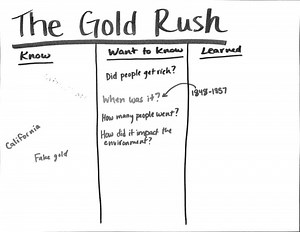 The Gold Rush
Know
Want to Know
Learned
Did people get rich?
When was it?
1848-1857
How many people went?
How did it impact the
environment?
California
Fake gold